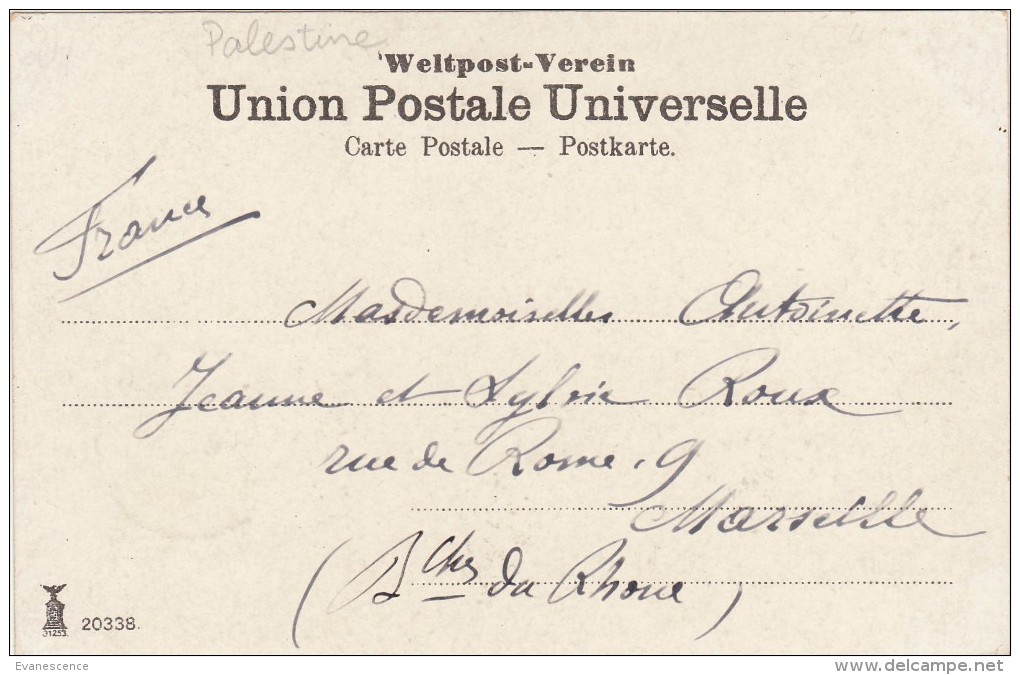 Palestine
Weltpost-Verein
Union Postale Universelle
Carte Postale — Postkarte.
France
Masdemoiselles Antoinette,
Jeanne et Sylvie Roux
rue de Rome, 9
Marseille
(Bches du Rhone)
31253.
20338.
Evanescence
©delcampe.net